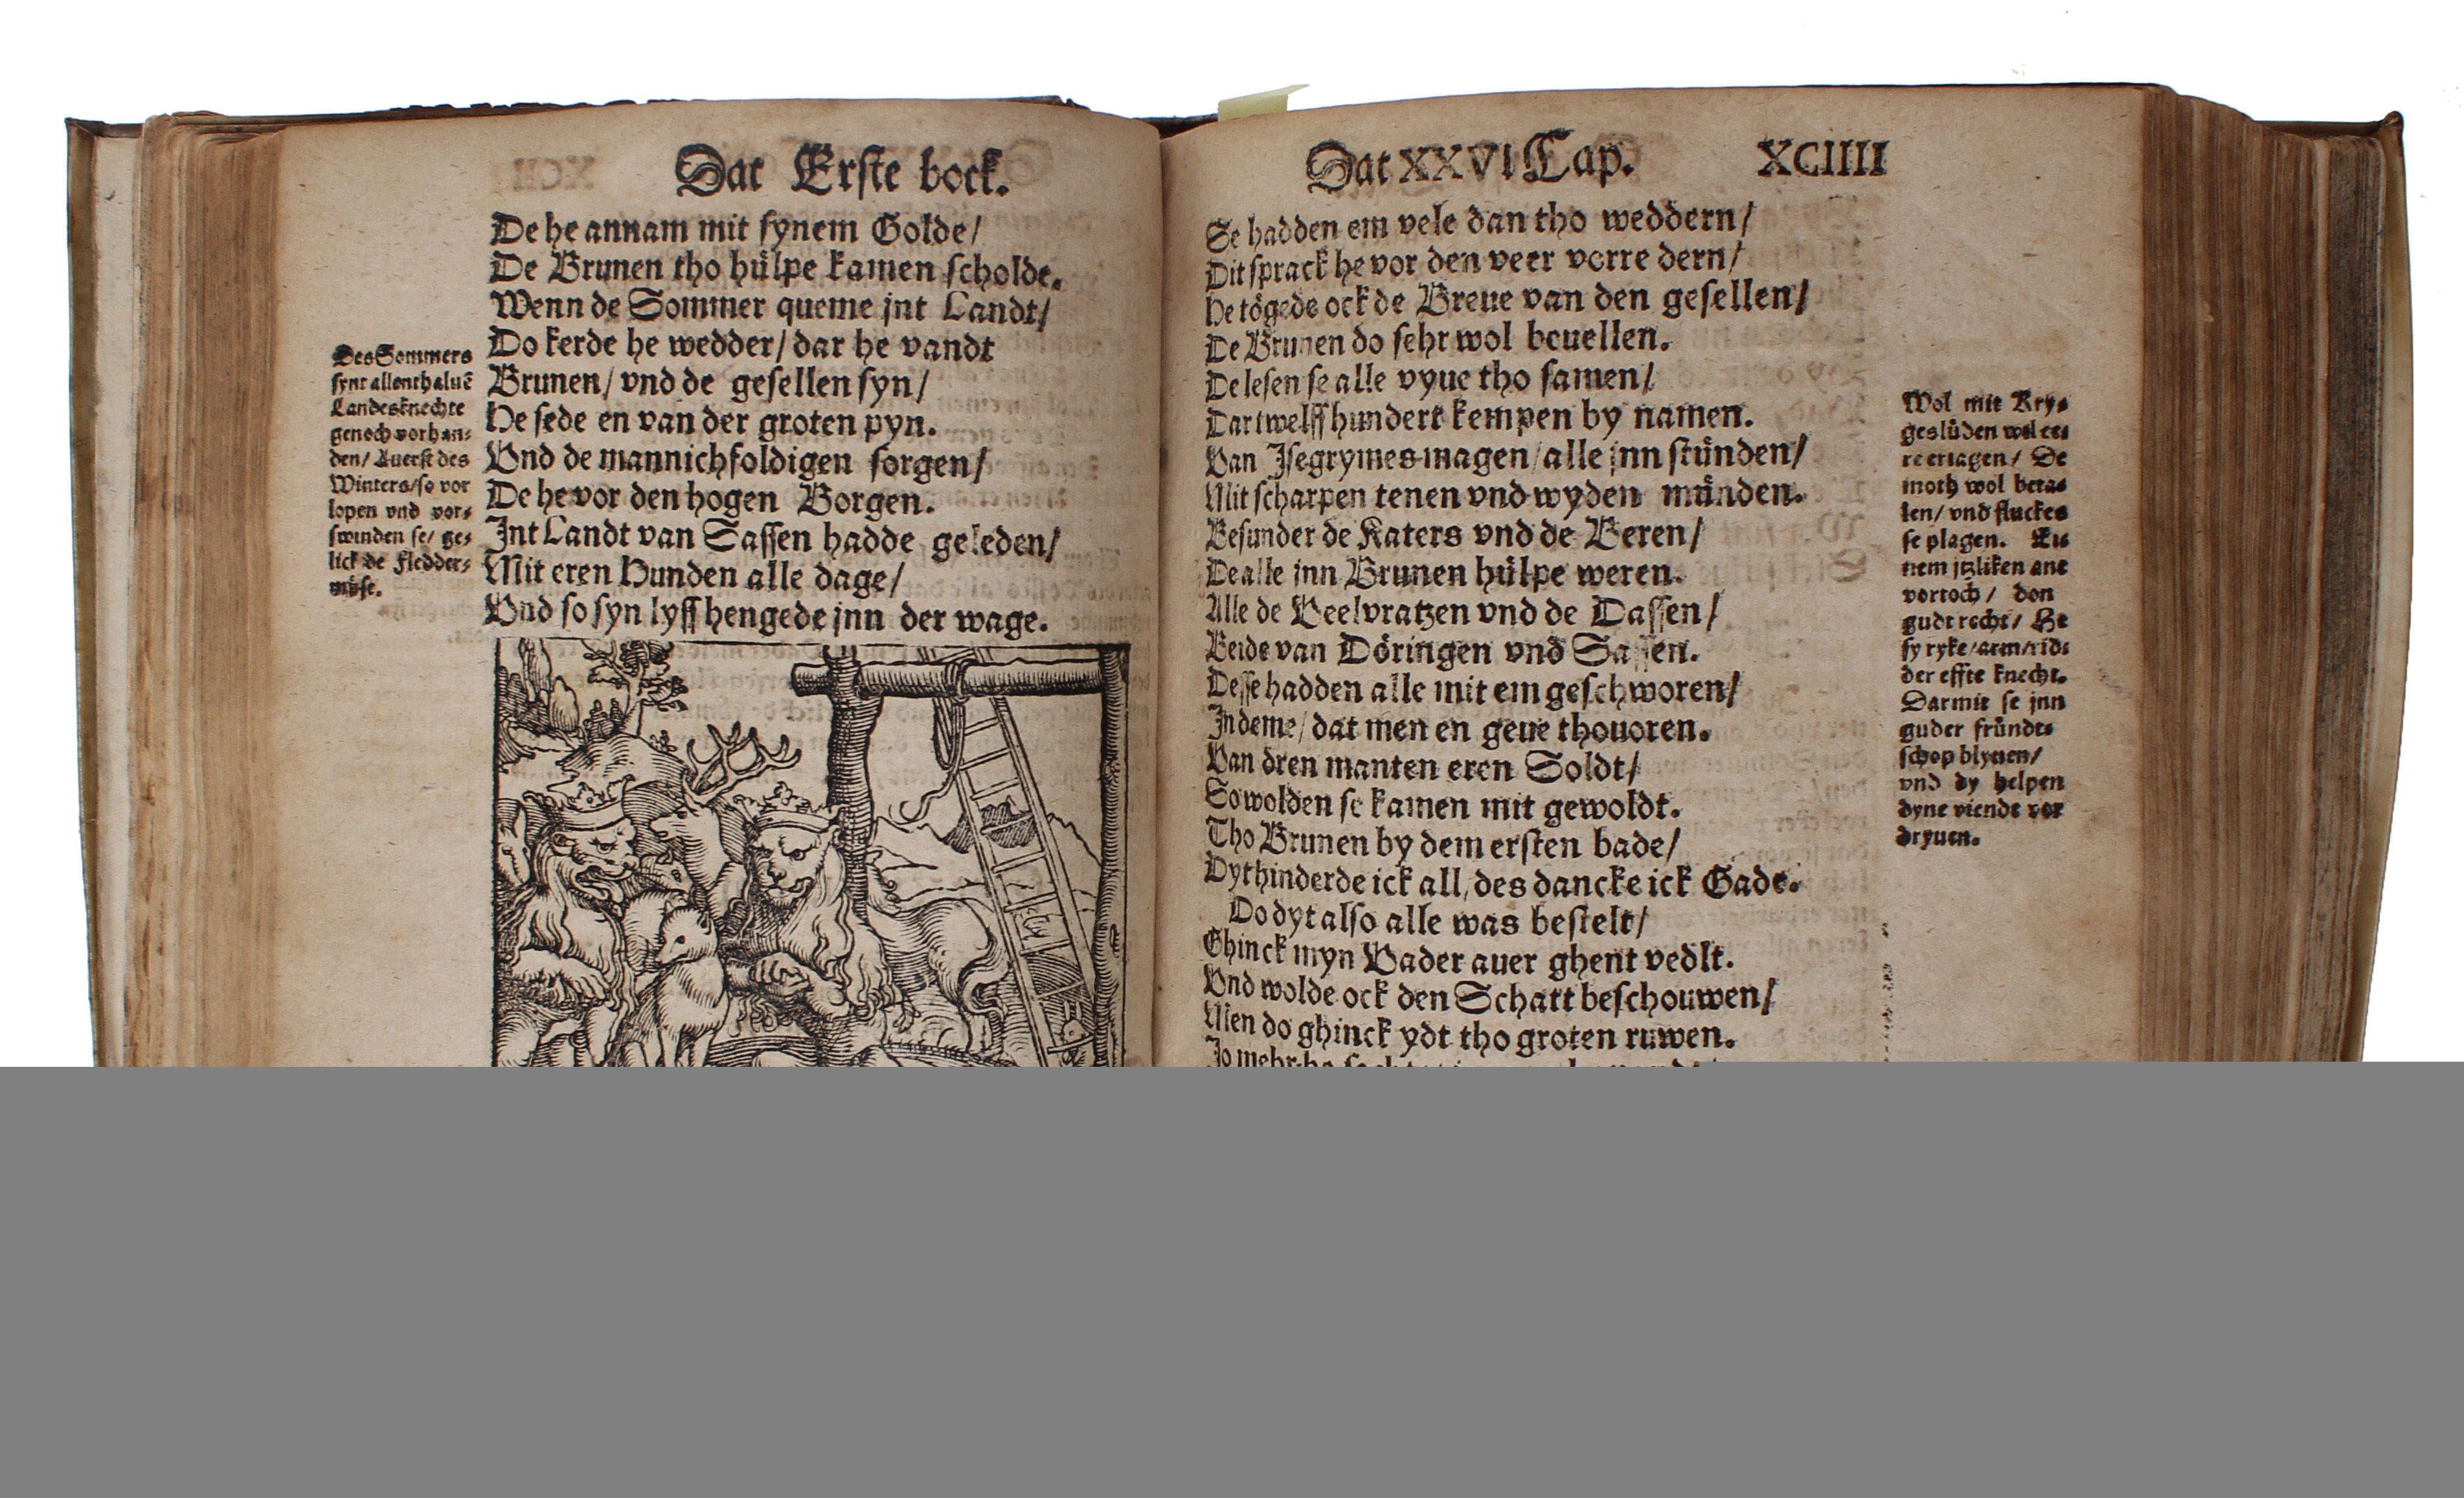 Dat Erste bock.
De he annam mit synem Golde/
De Brunen tho hülpe kamen scholde.
Wenn de Sommer queme jnt Landt/
Do kerde he wedder/ dar he vandt
Brunen/ vnd de gesellen syn/
He sede en van der groten pyn.
Vnd de mannichfoldigen sorgen/
De he vor den hogen Borgen.
Jnt Landt van Sassen hadde geleden/
Mit eren Hunden alle dage/
Vnd so syn lyff hengede jnn der wage.
Des Sommers
synt allenthaluē
Landesknechte
genoch vorhan-
den/ Auerst des
Winters/ so vor
lopen vnd vor-
swinden se/ ge-
lick de Fledder-
müse.
Dat XXVI Cap. XCIIII
Se hadden em vele dan tho weddern/
Dit sprack he vor den veer vorre dern/
He tögede ock de Breue van den gesellen/
De Brunen do sehr wol beuellen.
De lesen se alle vyue tho samen/
Dar twelff hundert kempen by namen.
Van Jsegrymes magen/ alle jnn stünden/
Mit scharpen tenen vnd wyden münden.
Besunder de Katers vnd de Beren/
De alle jnn Brunen hülpe weren.
Alle de Veelvratzen vnd de Dassen/
Beide van Döringen vnd Sassen.
Desse hadden alle mit em geschworen/
Jn deme/ dat men en geue thouoren.
Van dren manten eren Soldt/
So wolden se kamen mit gewoldt.
Tho Brunen by dem ersten bade/
Dyt hinderde ick all, des dancke ick Gade.
Do dyt also alle was bestelt/
Ghinck myn Vader auer ghent vedlt.
Vnd wolde ock den Schatt beschouwen/
Men do ghinck ydt tho groten ruwen.
Jo mehr he
Wol mit Kry-
geslüden wil ee-
re eriagen/ De
moth wol beta-
len/ vnd fluckes
se plagen. Ei-
nem jtzliken ane
vortoch/ don
gudt recht/ He
sy ryke/ arm/ rid-
der effte knecht.
Darmit se jnn
guder fründt-
schop blyuen/
vnd dy helpen
dyne viende vor
dryuen.